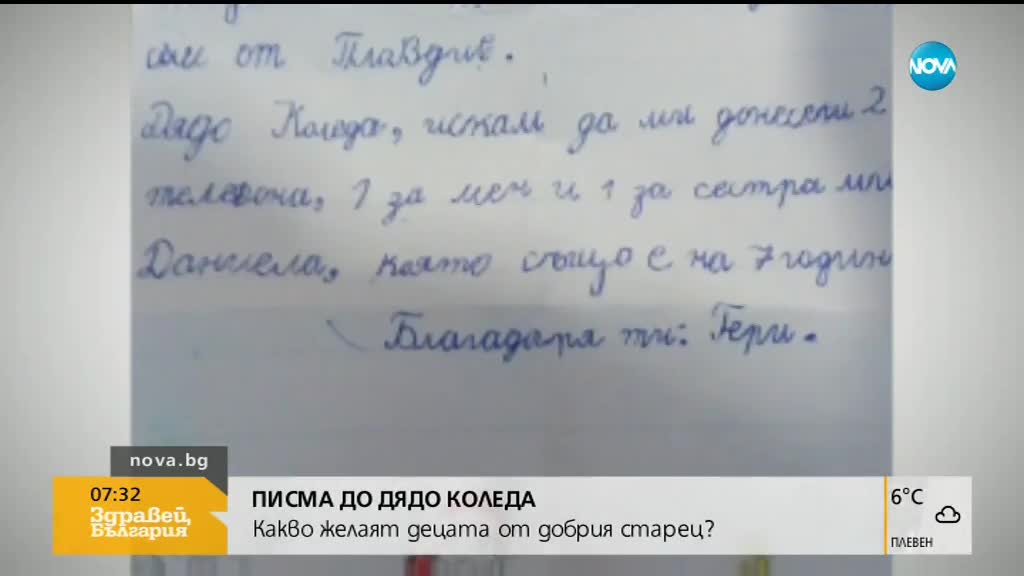 съм от Плавдив.
Дядо Коледа, искам да ми донесеш 2
телефона, 1 за мен и 1 за сестра ми
Даниела, която също е на 7 годин
Благадаря ти: Гери.
NOVA
nova.bg
07:32
Здравей,
България
ПИСМА ДО ДЯДО КОЛЕДА
Какво желаят децата от добрия старец?
6°C
ПЛЕВЕН